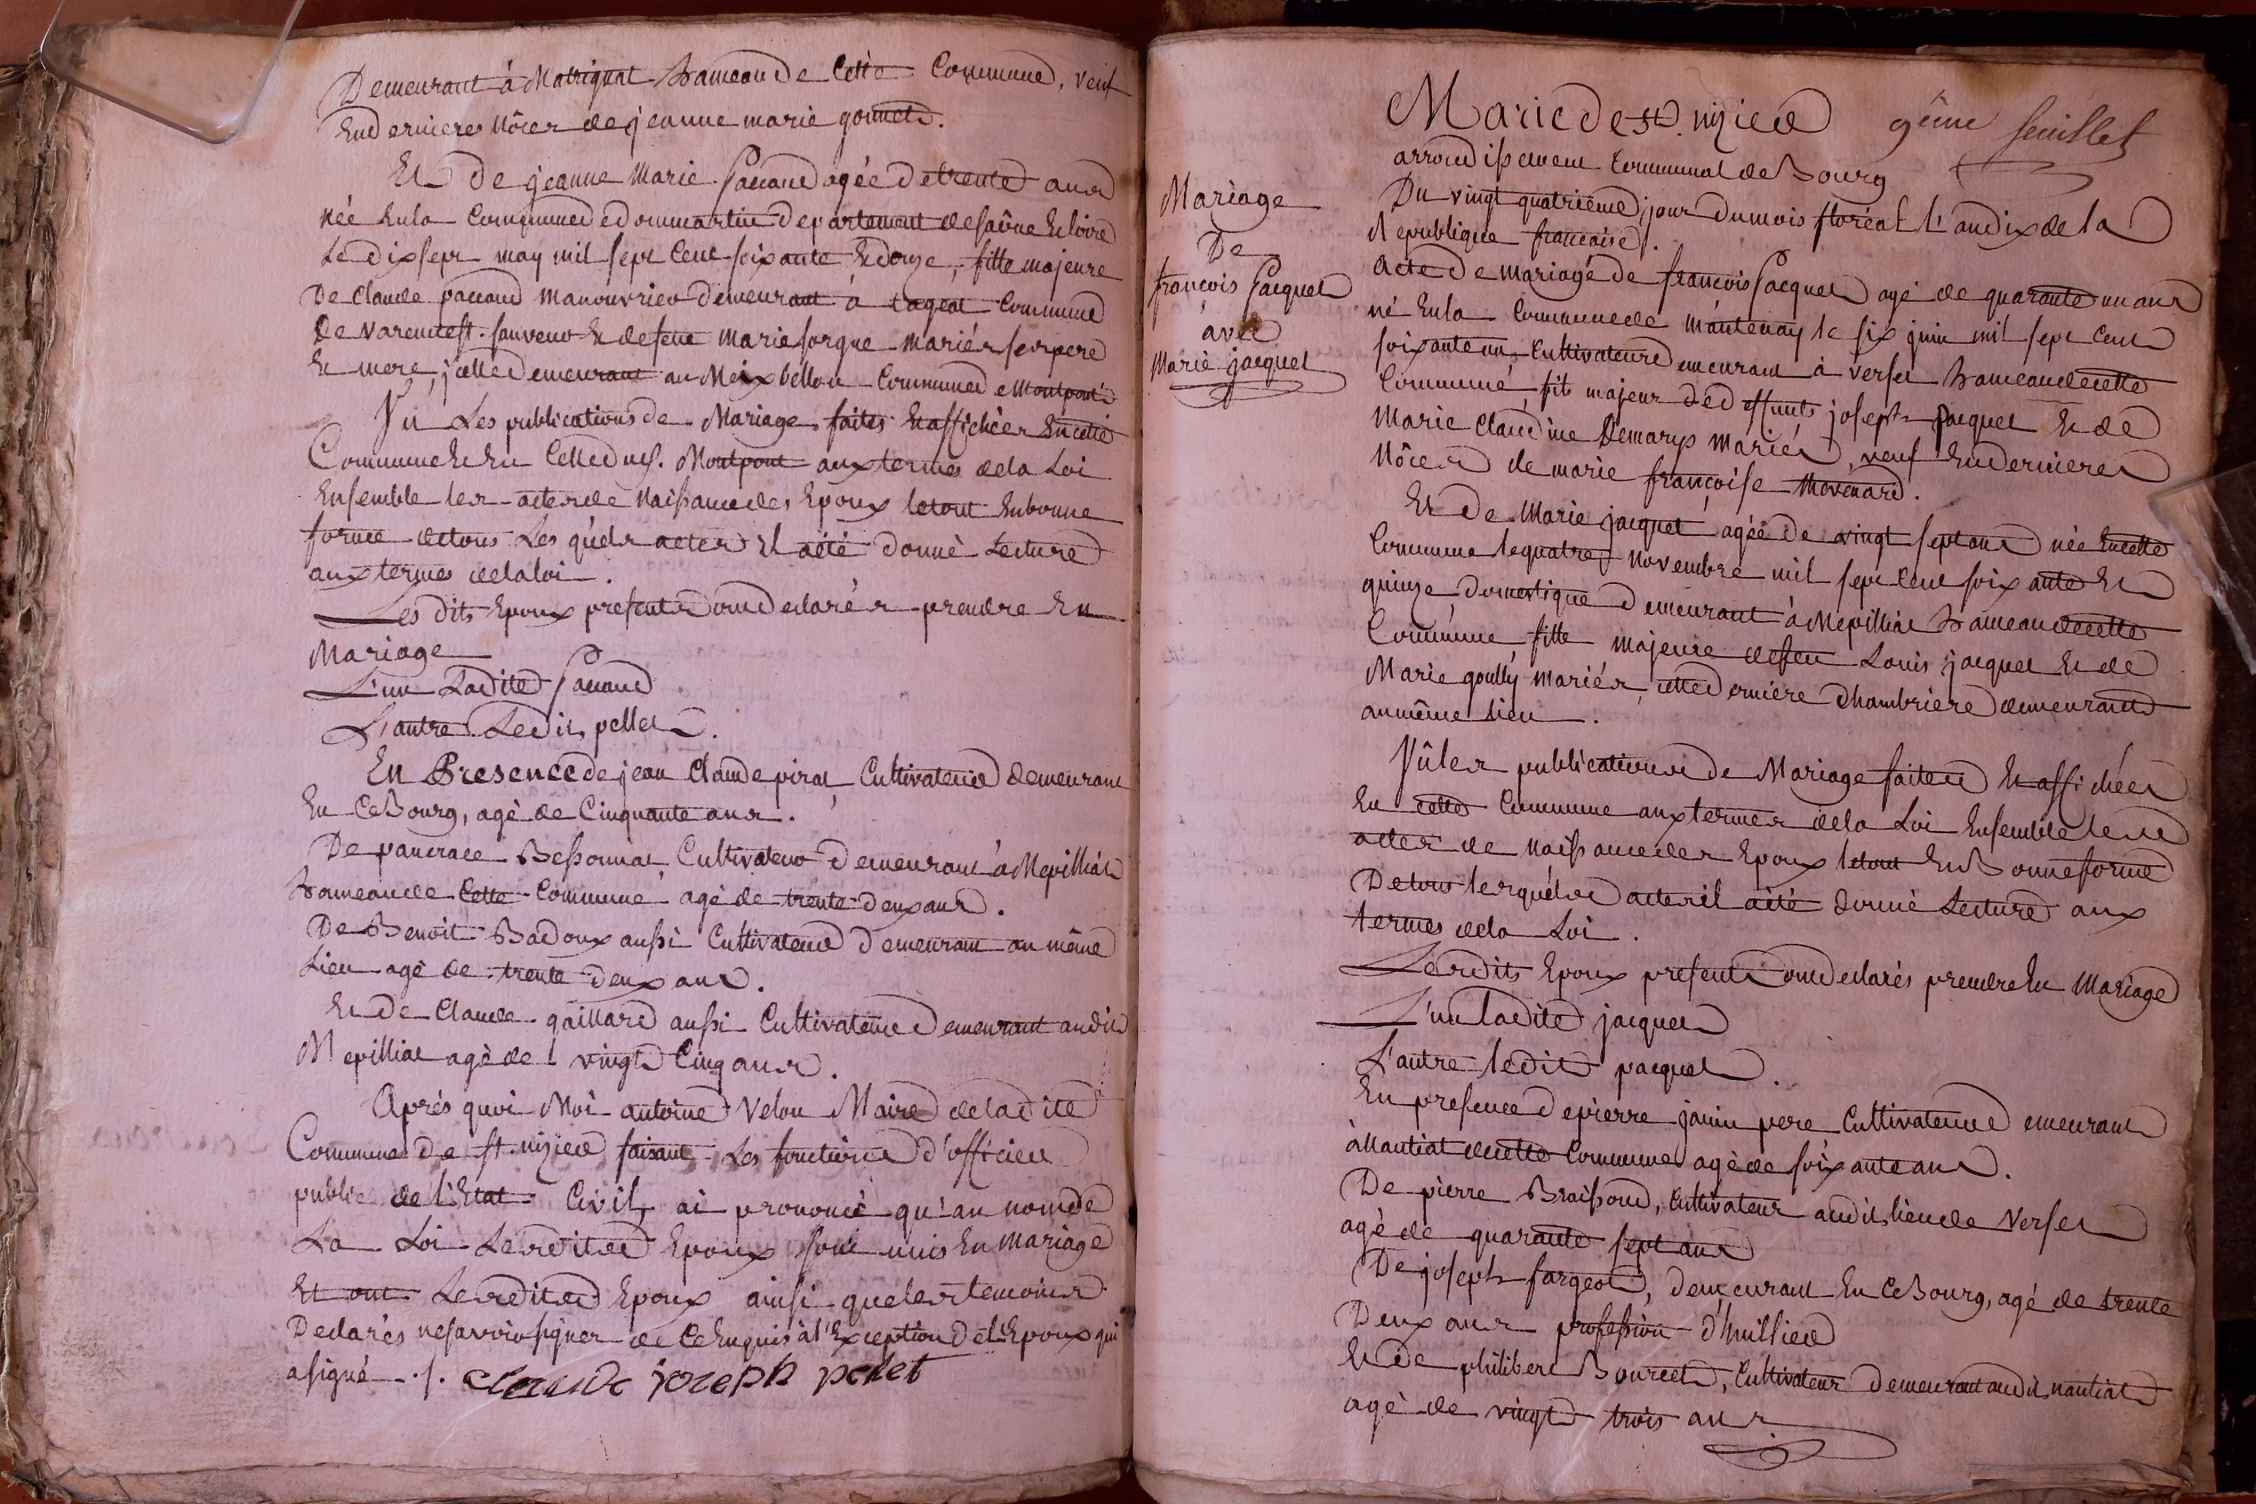 Demeurant à Matrignat hameau de Cette Commune, veuf
En dernieres Nôces de jeanne marie gonnet.
Et de jeanne Marie Paccaud agée de trente ans
née En la Commune de dommartin departement de saône Et loire
Le dix sept may mil sept Cent soixante Et douze, fille majeure
De Claude paccaud Manouvrier demeurant à Commune
De Varenne st. sauveur Et de feue Marie forque Mariés ses pere
Et mere, icelle demeurant au Meix bellon Commune de Montpont
Vû Les publications de Mariage faites Et affichées En cette
Commune Et En Celle du sr. Montpont aux termes de la Loi
Ensemble les actes de Naissance des Epoux le tout En bonne
forme de tous Les quels actes il a été donné Lecture
aux termes de la loi.
Les dits Epoux presents ont declarés prendre En
Mariage
L'un Ladite Paccaud
L'autre Ledit pellet.
En Presence de jean Claude pirat, Cultivateur demeurant
En Ce Bourg, agé de Cinquante ans.
De pancrace Bessonnat Cultivateur demeurant à Mepilliat
hameau de Cette Commune agé de trente deux ans.
De Benoit Badoux aussi Cultivateur demeurant au même
Lieu agé de trente deux ans.
Et de Claude gaillard aussi Cultivateur demeurant audit
Mepilliat agé de vingt Cinq ans.
Aprés quoi Moi antoine Velon Maire de la dite
Commune de st. nizier faisant Les fonctions d'officier
public de l'Etat Civil, ai prononcé qu'au nom de
La Loi Lesdites Epoux sont unis En Mariage
Et ont Lesdites Epoux ainsi que les temoins
Declarés ne savoir signer de ce Enquis à l'Exception de l'Epoux qui
a signé ./. claude joseph pelet
Mariage
De
francois Pacquet
avec
Marie jacquet
Marie de st. nizier 9ême feuillet
arrondissement Communal de Bourg
Du vingt quatrième jour du mois floréal l'an dix de la
République francaise.
Acte de Mariage de francois Pacquet agé de quarante un ans
né En la Commune de mantenay le six juin mil sept Cent
soixante un, Cultivateur demeurant à Verset hameau de cette
Commune, fils majeur de deffunts joseph Pacquet Et de
Marie Claudine Demarys Mariés, veuf En dernieres
Nôces de marie françoise Movenard.
Et de Marie jacquet agée de vingt sept ans née En cette
Commune le quatre Novembre mil sept Cent soixante Et
quinze domestique demeurant à Mepilliat hameau de cette
Commune, fille majeure de feu Louis jacquet Et de
Marie goully Mariés, cette derniere Chambriere demeurant
au même Lieu.
Vû les publications de Mariage faites Et affichées
En cette Commune aux termes de la Loi Ensemble les
actes de Naissance des Epoux le tout En Bonne forme
De tous les quels actes il a été donné Lecture aux
termes de la Loi.
Lesdits Epoux presents ont declarés prendre En Mariage
L'un Ladite jacquet
L'autre ledit pacquet.
En presence de pierre janin pere Cultivateur demeurant
à Nantiat de cette Commune agé de soixante ans.
De pierre Braissoud, Cultivateur audit lieu de Verset
agé de quarante sept ans
De joseph fargeot, demeurant En Ce Bourg, agé de trente
Deux ans profession d'huillier
Et de philibert Bourcet, Cultivateur demeurant audit nantiat
agé de vingt trois ans